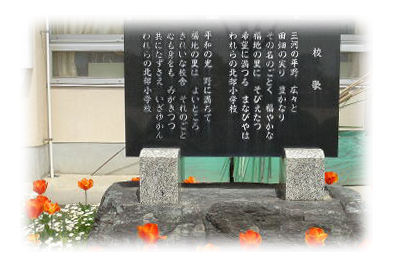 校歌
三河の平野 広々と
田畑の実り 豊かなり
その名のごとく 福やかな
福地の里に そびえたつ
希望に満つる まなびやは
われらの北部小学校
平和の光 野に満ちて
福地の里は よいところ
きれいな校舎 それのごと
心も身をも みがきつつ
共にたずさえ いざゆかん
われらの北部小学校